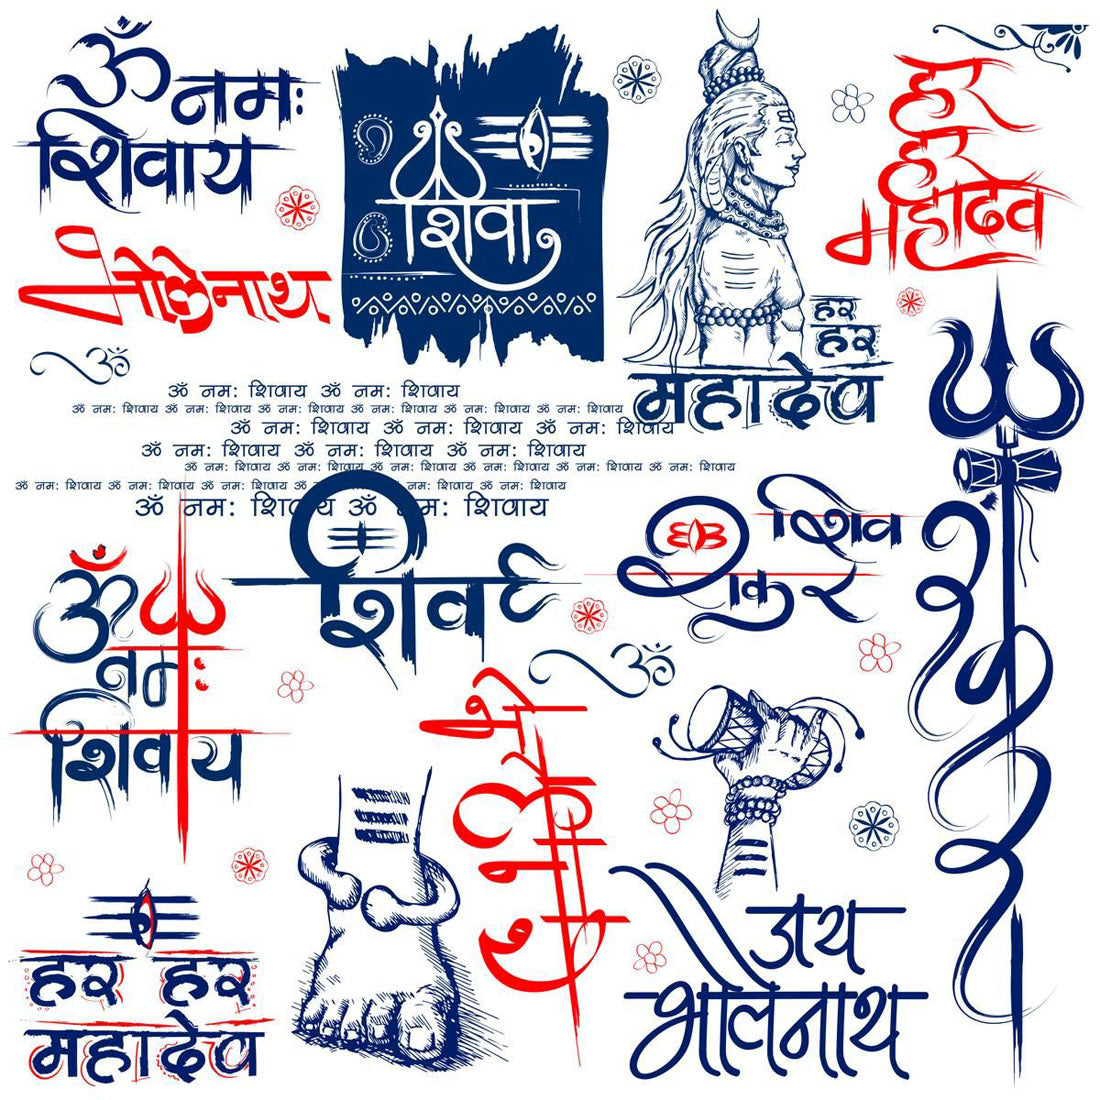 ॐ नमः
शिवाय
भोलेनाथ
ॐ
शिवा
हर
हर
महादेव
हर
हर
महादेव
ॐ नमः शिवाय ॐ नमः शिवाय
ॐ नमः शिवाय ॐ नमः शिवाय ॐ नमः शिवाय ॐ नमः शिवाय ॐ नमः शिवाय ॐ नमः शिवाय
ॐ नमः शिवाय ॐ नमः शिवाय ॐ नमः शिवाय
ॐ नमः शिवाय ॐ नमः शिवाय ॐ नमः शिवाय
ॐ नमः शिवाय ॐ नमः शिवाय ॐ नमः शिवाय ॐ नमः शिवाय ॐ नमः शिवाय ॐ नमः शिवाय
ॐ नमः शिवाय ॐ नमः शिवाय ॐ नमः शिवाय ॐ नमः शिवाय ॐ नमः शिवाय ॐ नमः शिवाय
ॐ नमः शिवाय ॐ नमः शिवाय
ॐ
नमः
शिवाय
शिव
शिव
शंकर
शंकर
ॐ
हर हर
महादेव
जय
भोलेनाथ